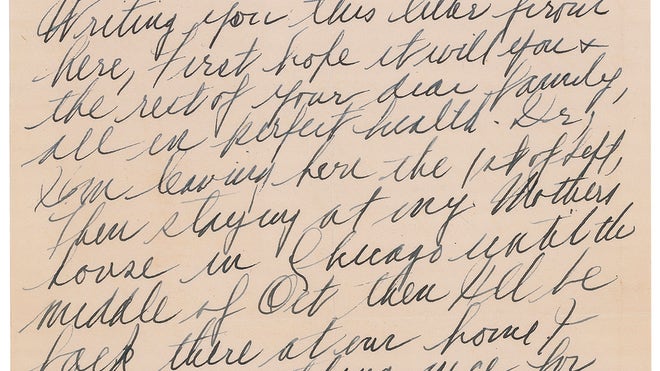 Writing you this letter from
here, First hope it will you &
the rest of your dear family,
all in perfect health. Dr,
I'm leaving here the 1st of Sept,
Then staying at my Mothers
house in Chicago until the
middle of Oct then I'll be
back there at our home &
nice for